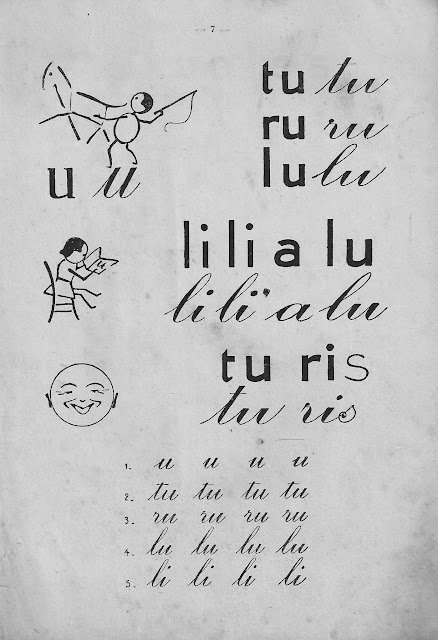 — 7 —
tu tu
ru ru
u u
lu lu
li li a lu
u
li li a lu
tu ris
tu ris
1. u u u u
2. tu tu tu tu
3. ru ru ru ru
4. lu lu lu lu
5. li li li li